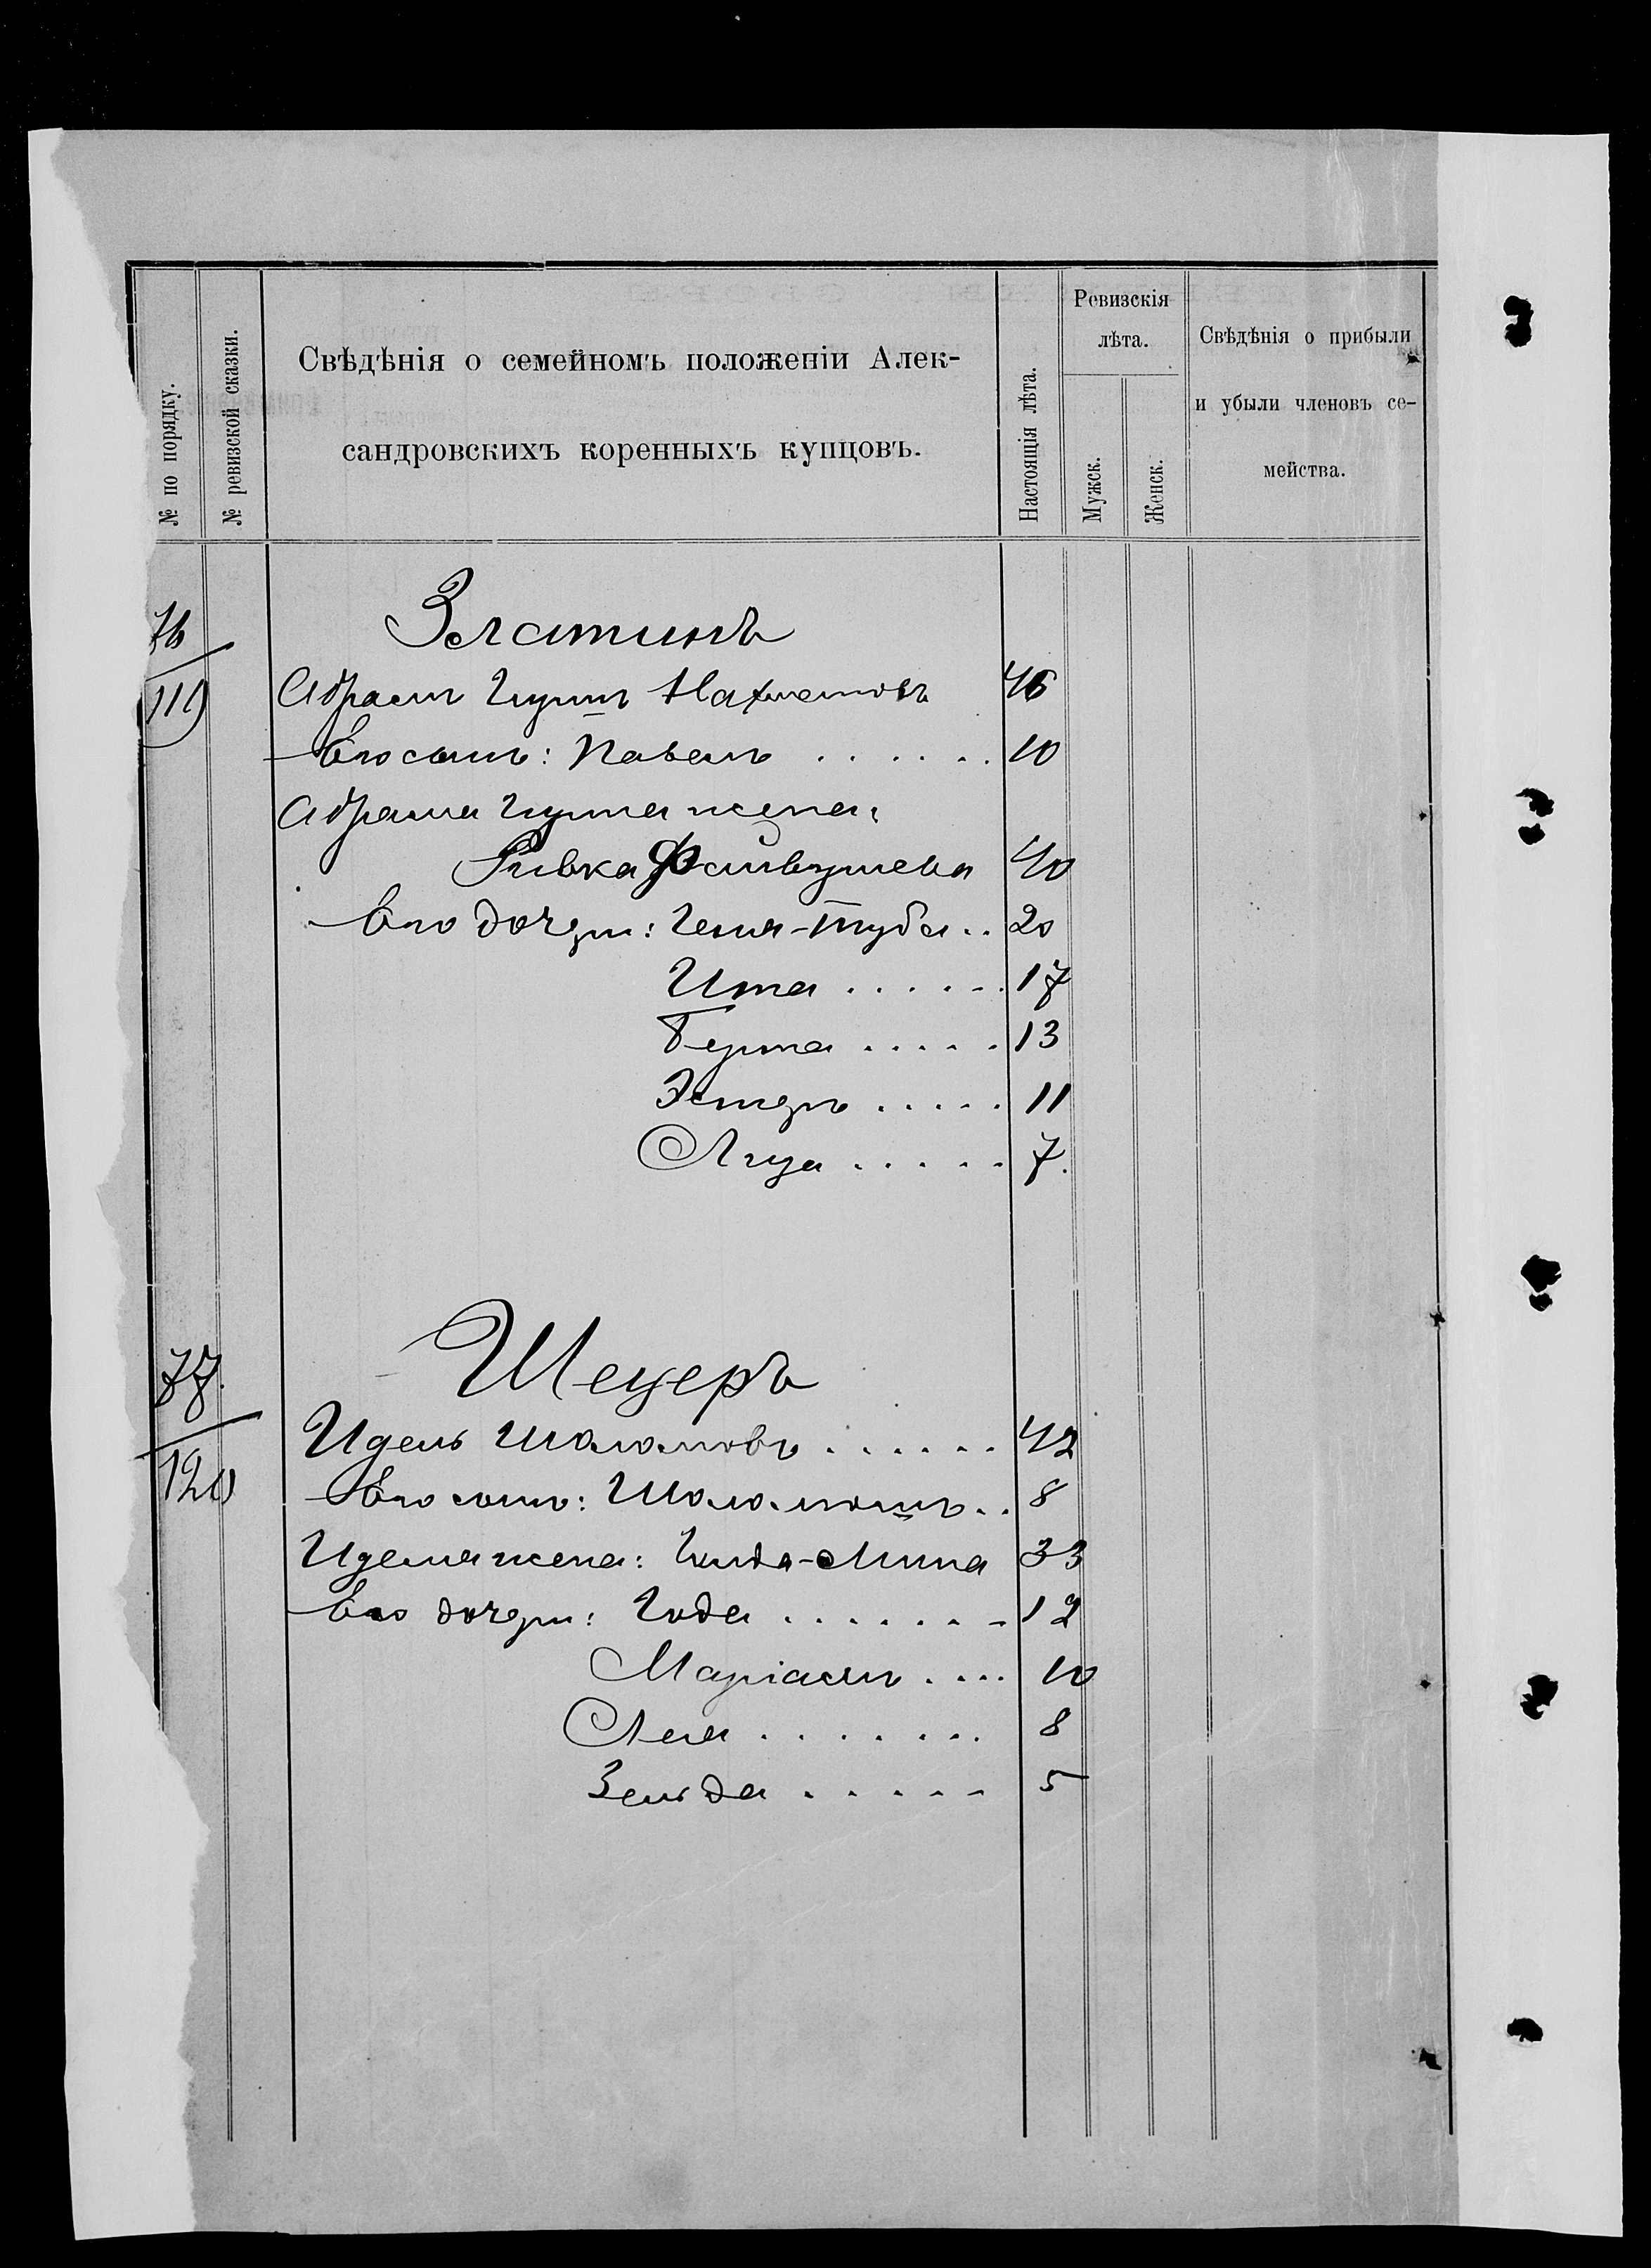 № по порядку.
№ ревизской сказки.
Свѣдѣнія о семейномъ положеніи Алек-
сандровскихъ коренныхъ купцовъ.
Настоящія лѣта.
Ревизскія
лѣта.
Мужск.
Женск.
Свѣдѣнія о прибыли
и убыли членовъ се-
мейства.
76
Златинъ
119
Абрамъ Гиршъ Нахмановъ 46
Его сынъ: Павелъ . . . . . . 10
Абрама Гирша жена:
Ривка Файвушева 40
Его дочери: Геня-Туба . . 20
Ита . . . . . . 17
Берта . . . . . 13
Эстеръ . . . . . 11
Лиза . . . . . 7.
77.
Шецеръ
120
Идель Шоломовъ . . . . . . 42
Его сынъ: Шоломъ . . 8
Иделя жена: Гинда-Мина 33
Его дочери: Года . . . . . . . 12
Маріамъ . . . . 10
Лея . . . . . . . 8
Зельда . . . . . 5